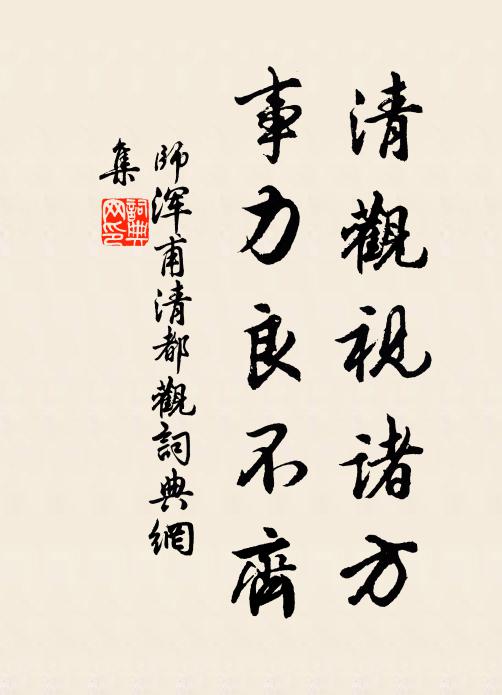 清觀視诸方
事力良不齊
師浑甫清都觀詞典網
集
詞典網印